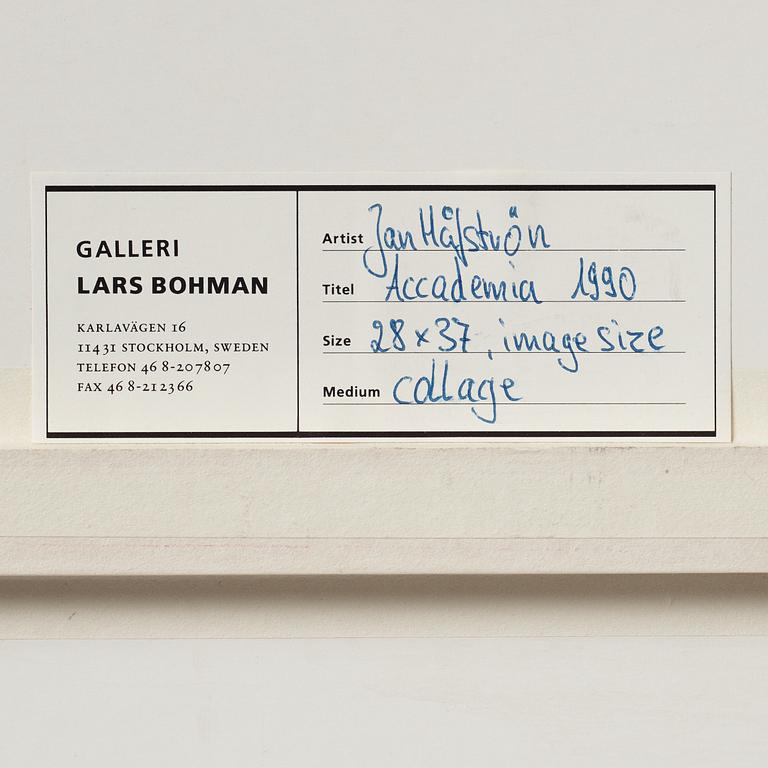 GALLERI
LARS BOHMAN
KARLAVÄGEN 16
11431 STOCKHOLM, SWEDEN
TELEFON 46 8-207807
FAX 46 8-212366
Artist Jan Håfström
Titel Accademia 1990
Size 28 x 37, image size
Medium collage